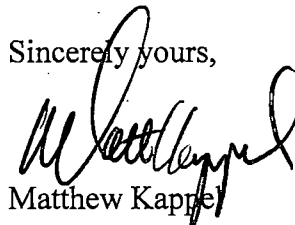 Sincerely yours,
Matt Kappel
Matthew Kappel